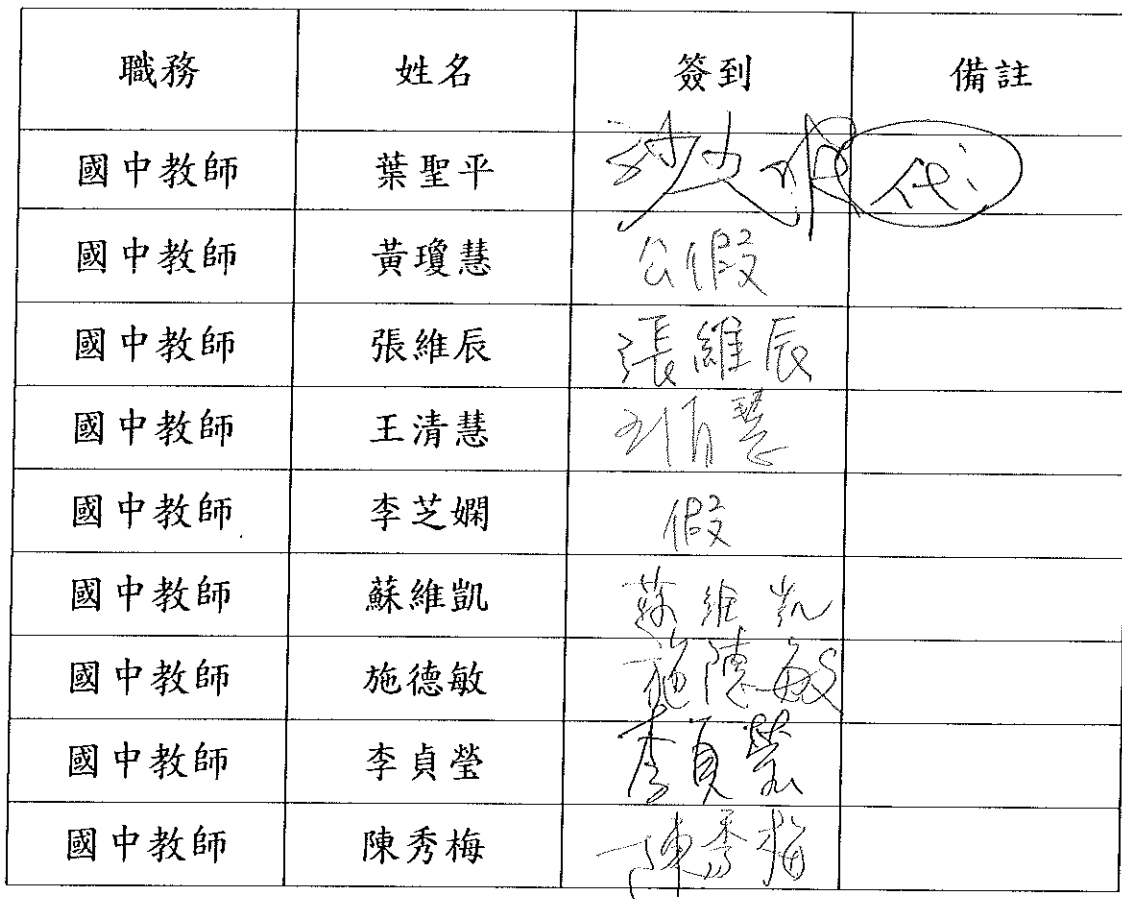 職務 姓名 簽到 備註
國中教師 葉聖平 代
國中教師 黃瓊慧 公假
國中教師 張維辰 張維辰
國中教師 王清慧 王清慧
國中教師 李芝嫻 假
國中教師 蘇維凱 蘇維凱
國中教師 施德敏 施德敏
國中教師 李貞瑩 李貞瑩
國中教師 陳秀梅 陳秀梅